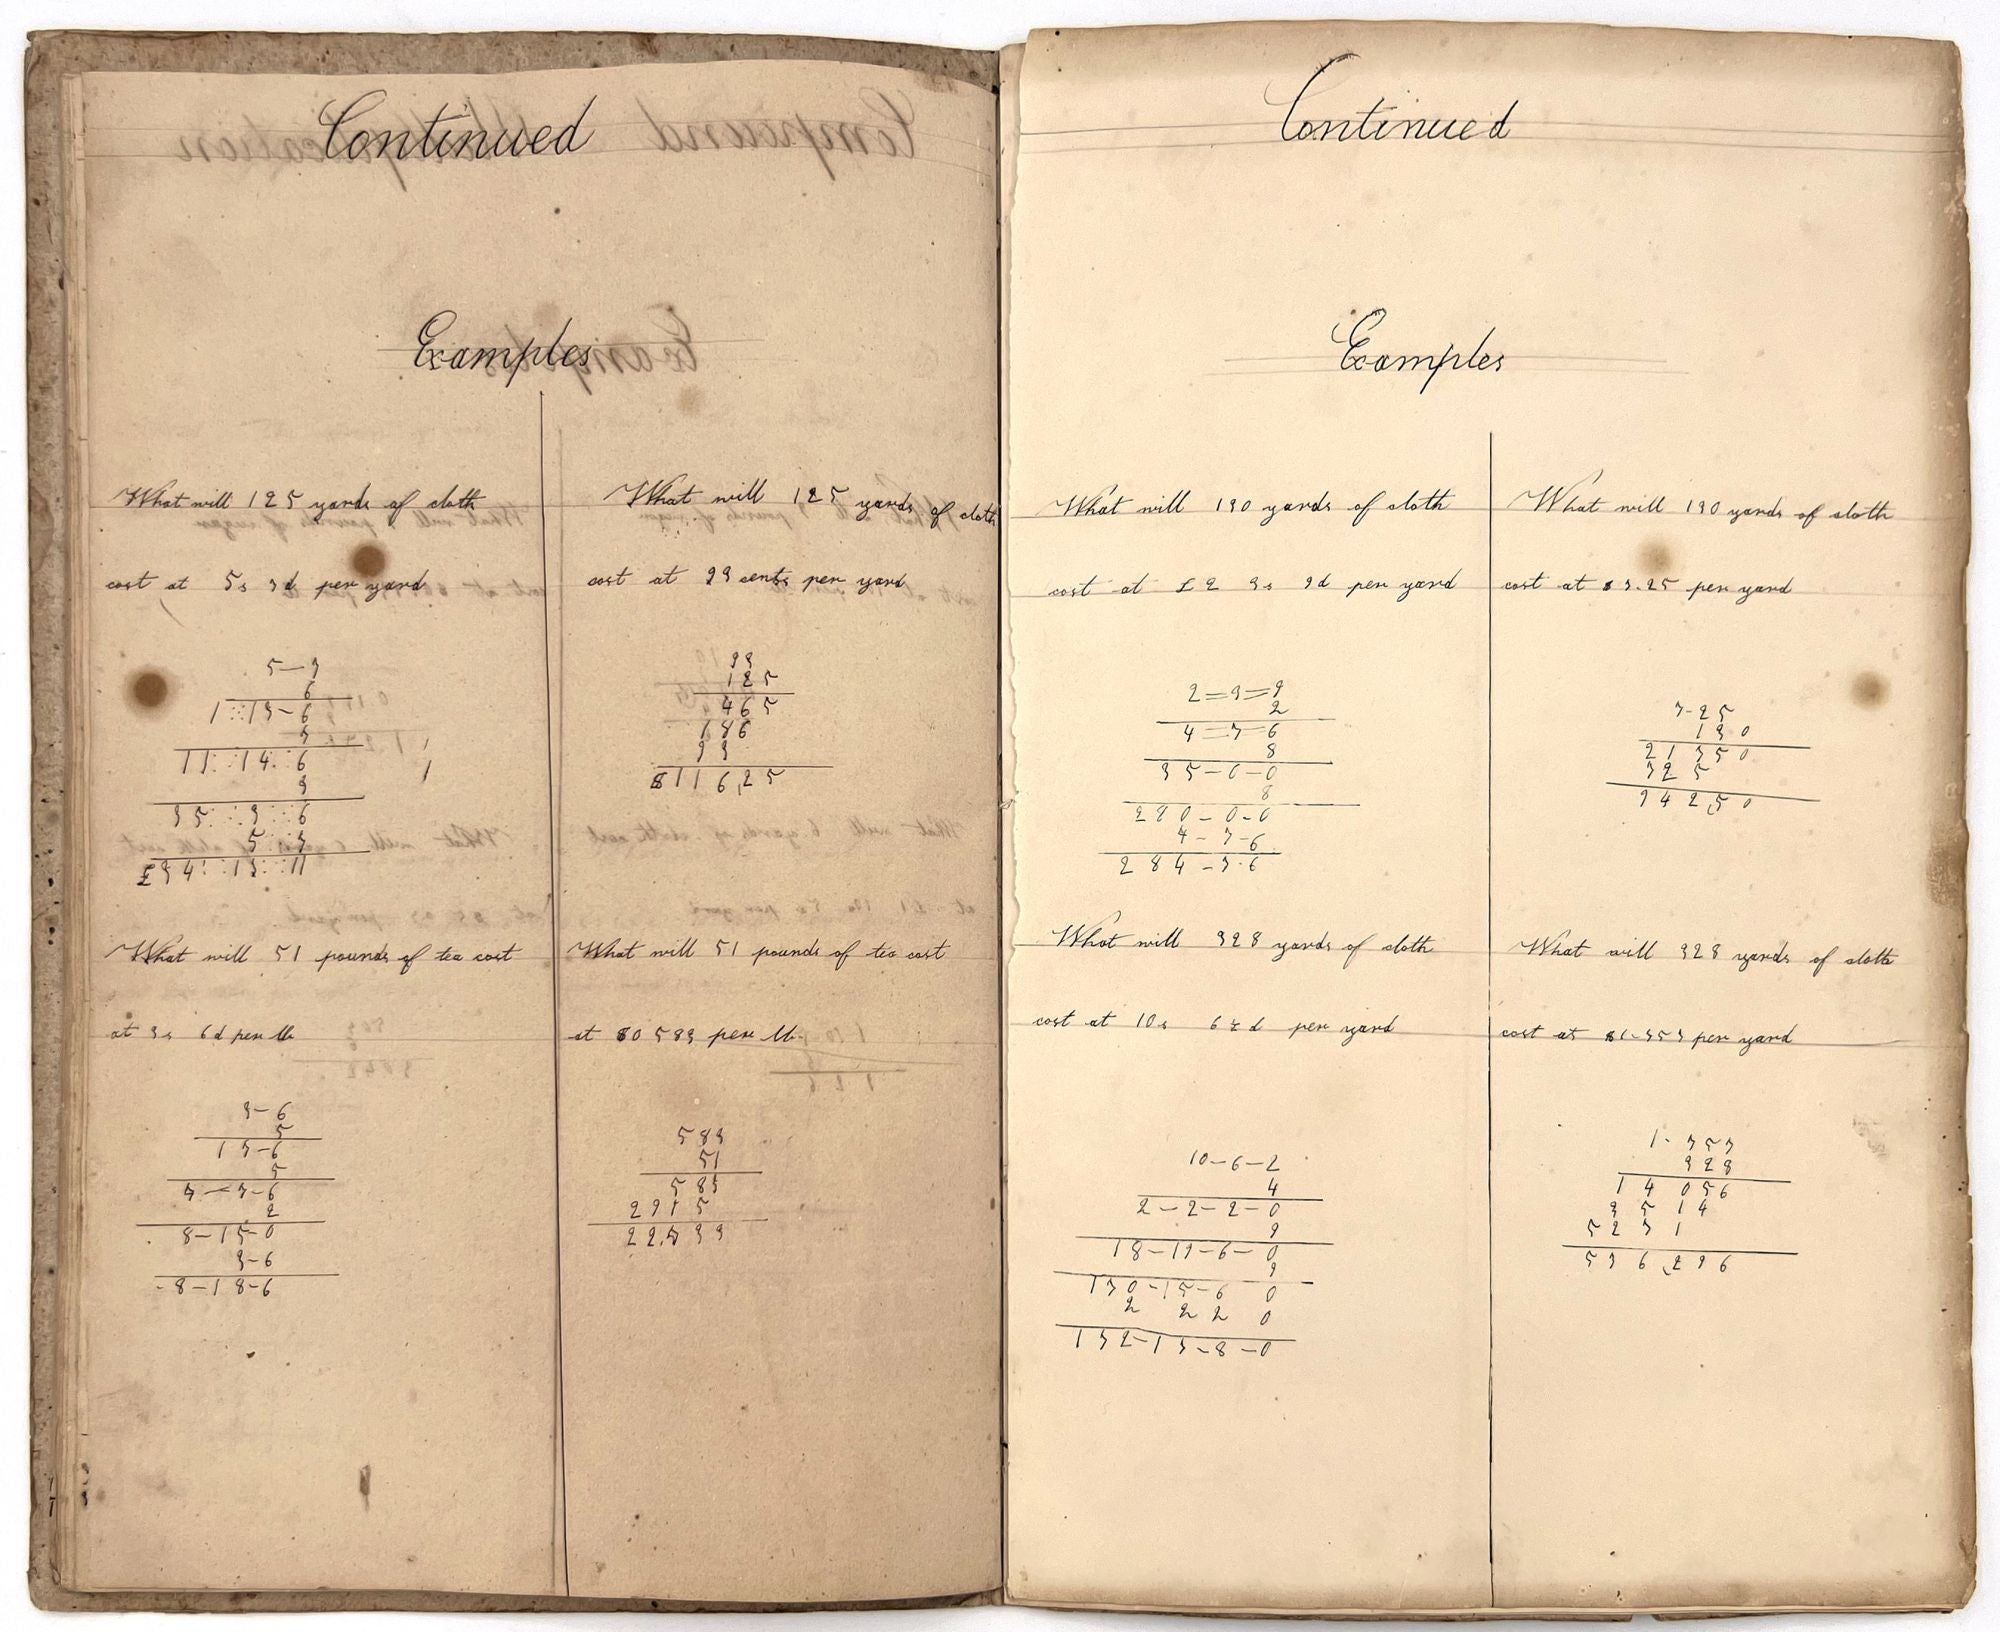 Continued
Examples
What will 125 yards of cloth
cost at 5s 7d per yard
5—7
6
1::13-6
7
11::14::6
3
35::3::6
5::7
£34::17::11
What will 125 yards of cloth
cost at 93 cents per yard
93
125
465
186
93
$116,25
What will 51 pounds of tea cost
at 3s 6d per lb
3-6
5
17-6
5
4-7-6
2
8-15-0
3-6
8-18-6
What will 51 pounds of tea cost
at $0 583 per lb.
583
51
583
2915
29,733
Continued
Examples
What will 130 yards of cloth
cost at £2 3s 9d per yard
2=3=9
2
4=7-6
8
35-0-0
8
280-0-0
4-7-6
284-7-6
What will 130 yards of cloth
cost at $7.25 per yard
7-25
130
21750
725
942,50
What will 328 yards of cloth
cost at 10s 6½d per yard
10-6-2
4
2-2-2-0
9
18-19-6-0
9
170-15-6 0
2 2 2 0
172-17-8-0
What will 328 yards of cloth
cost at $1-757 per yard
1-757
328
14056
3514
5271
576,296